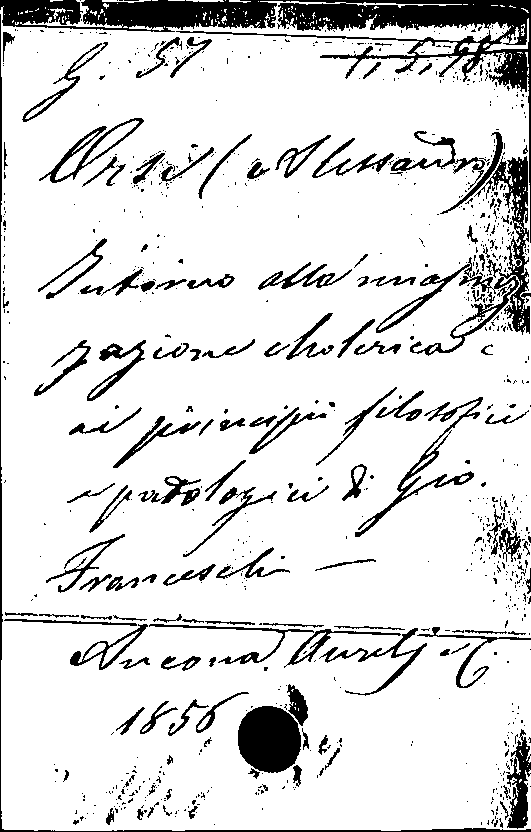 G. 57 1, 5, 98
Orsi (Alessandro)
Intorno alla miasmiz-
zazione cholerica e
ai principii filosofici
e patologici di Gio.
Franceschi —
Ancona. Aurelj e C.
1856